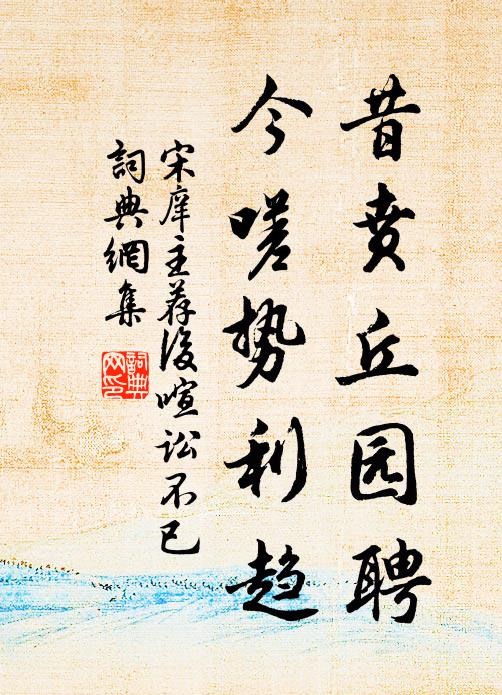 昔贲丘园聘
今嗟势利趋
宋庠主荐後喧讼不已
詞典網集
詞典
网印